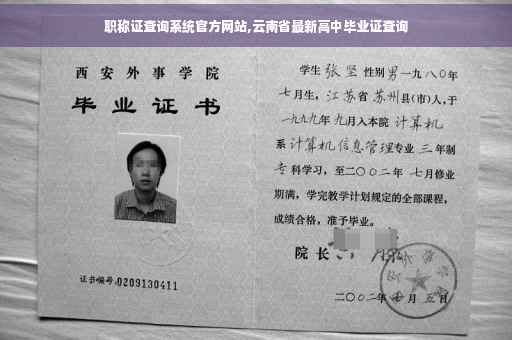 职称证查询系统官方网站,云南省最新高中毕业证查询
西安外事学院
毕业证书
证书编号:0209130411
学生 张坚 性别男 一九八〇年
七月生,江苏省苏州县(市)人,于
一九九九年九月入本院 计算机
系计算机信息管理专业 三 年制
专科学习,至二〇〇二年 七月修业
期满,学完教学计划规定的全部课程,
成绩合格,准予毕业。
院长
二〇〇二年 月五日